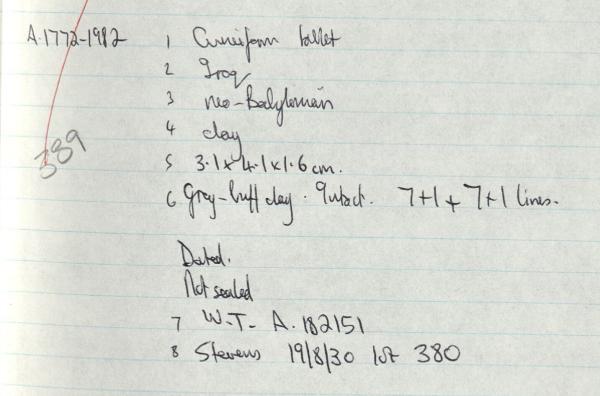 A.1772-1982 1 Cuneiform tablet
2 Iraq
3 neo-Babylonain
4 clay
5 3.1 x 4.1 x 1.6 cm.
6 Grey-buff clay. Intact. 7+1+7+1 lines.
389
Dated.
Not sealed
7 W-T- A.182151
8 Stevens 19/8/30 lot 380